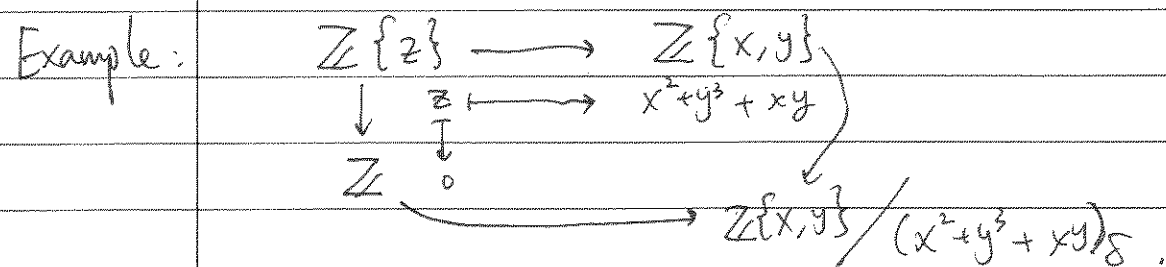 Example: ℤ{z} ⟶ ℤ{x,y}
↓ z ⟼ x²+y³+xy
ℤ 0
ℤ{x,y}/(x²+y³+xy)_δ.